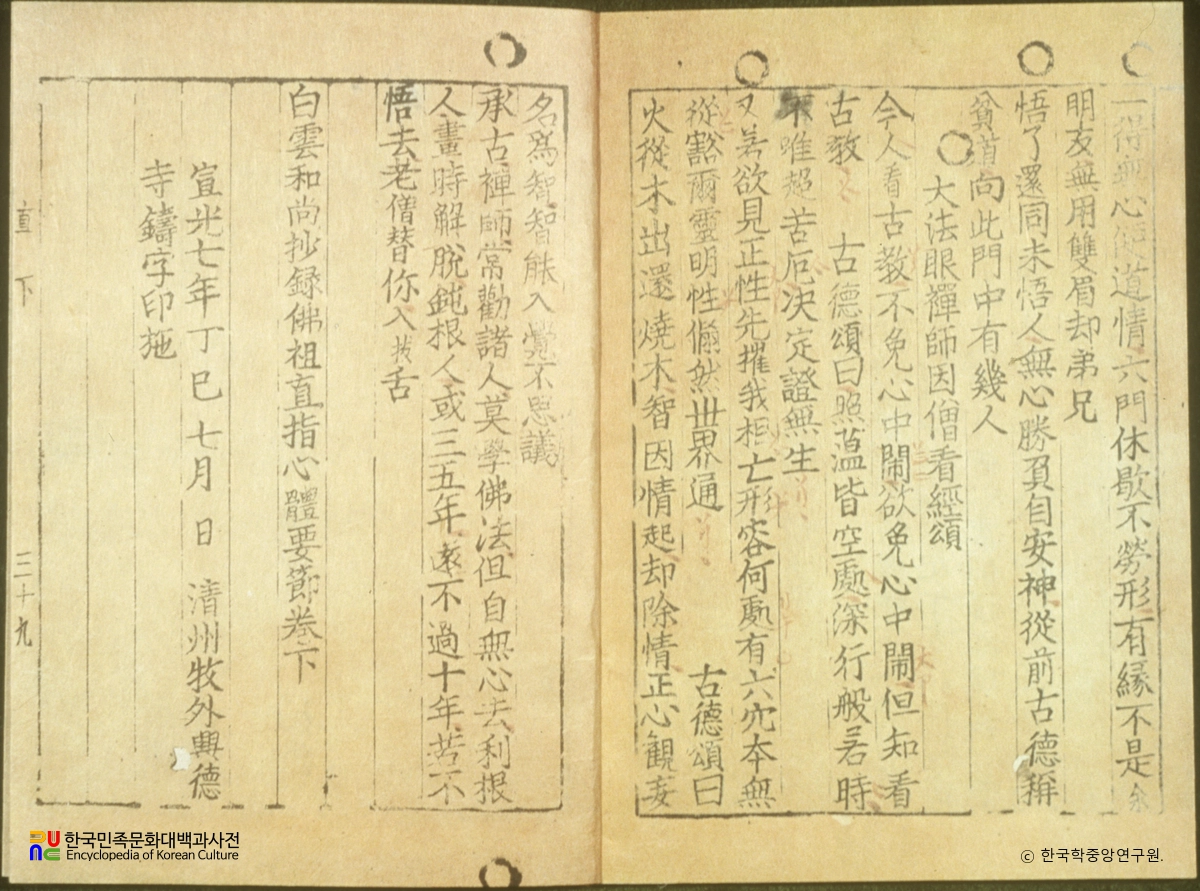 一得無心便道情六門休歇不勞形有緣不是余
朋友無用雙眉却弟兄
悟了還同未悟人無心勝負自安神從前古德稱
貧道向此門中有幾人
大法眼禪師因僧看經頌
今人看古教不免心中鬧欲免心中鬧但知看
古教 古德頌曰照蘊皆空處深行般若時
不唯超苦厄决定證無生
又若欲見正性先摧我相亡形容何處有六穴本無
從豁爾靈明性翛然世界通 古德頌曰
火從木出還燒木智因情起却除情正心觀妄
名爲智智能入覺不思議
承古禪師常勸諸人莫學佛法但自無心去利根
人畫時解脫鈍根人或三五年遠不過十年若不
悟去老僧替你入拔舌
白雲和尚抄録佛祖直指心體要節卷下
宣光七年丁巳七月 日 清州牧外興德
寺鑄字印施
直 下 三十九
한국민족문화대백과사전
Encyclopedia of Korean Culture
© 한국학중앙연구원.